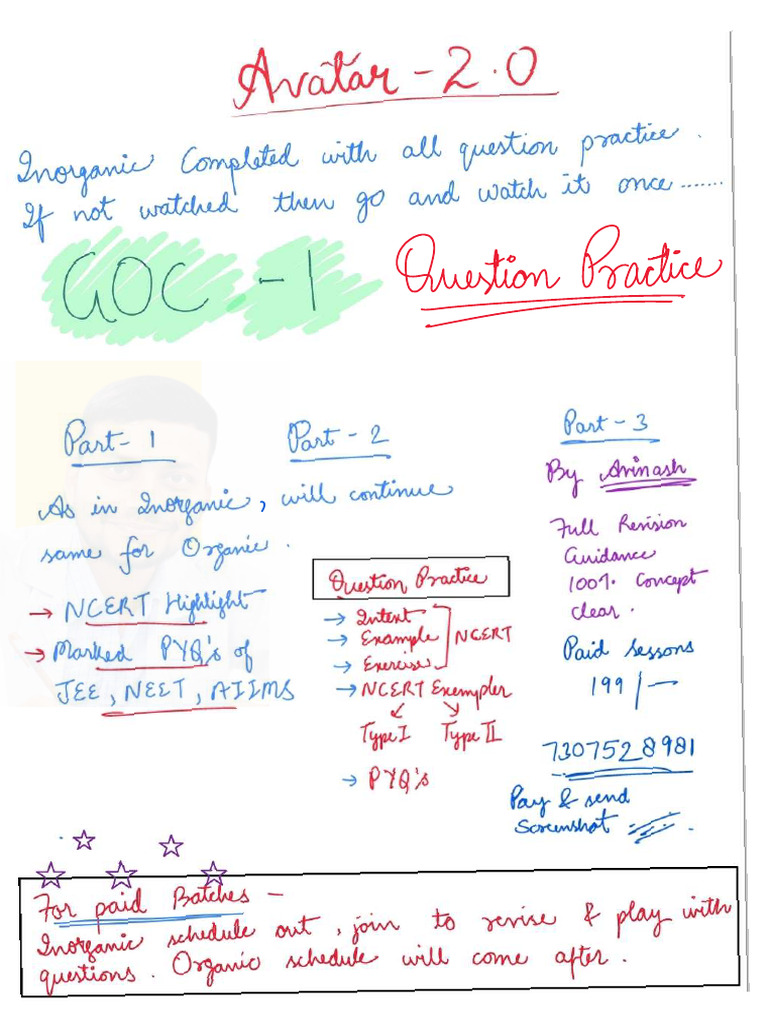 Avatar - 2.0
Inorganic Completed with all question practice.
If not watched then go and watch it once.......
GOC - 1
Question Practice
Part- 1
Part - 2
As in Inorganic, will continue
same for Organic.
→ NCERT Highlight
→ Marked PYQ's of
JEE, NEET, AIIMS
Question Practice
→ Intext
→ Example
→ Exercise
NCERT
→ NCERT Exempler
Type I Type II
→ PYQ's
Part - 3
By Avinash
Full Revision
Guidance
100% Concept
clear.
Paid sessons
199/-
7307528981
Pay & send
Screenshot
For paid Batches -
Inorganic schedule out, join to revise & play with
questions. Organic schedule will come after.